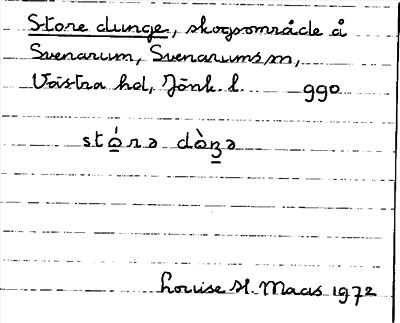 Store dunge, skogsområde å
Svenarum, Svenarums sn,
Västra hd, Jönk. l. 990
Louise H. Maas 1972